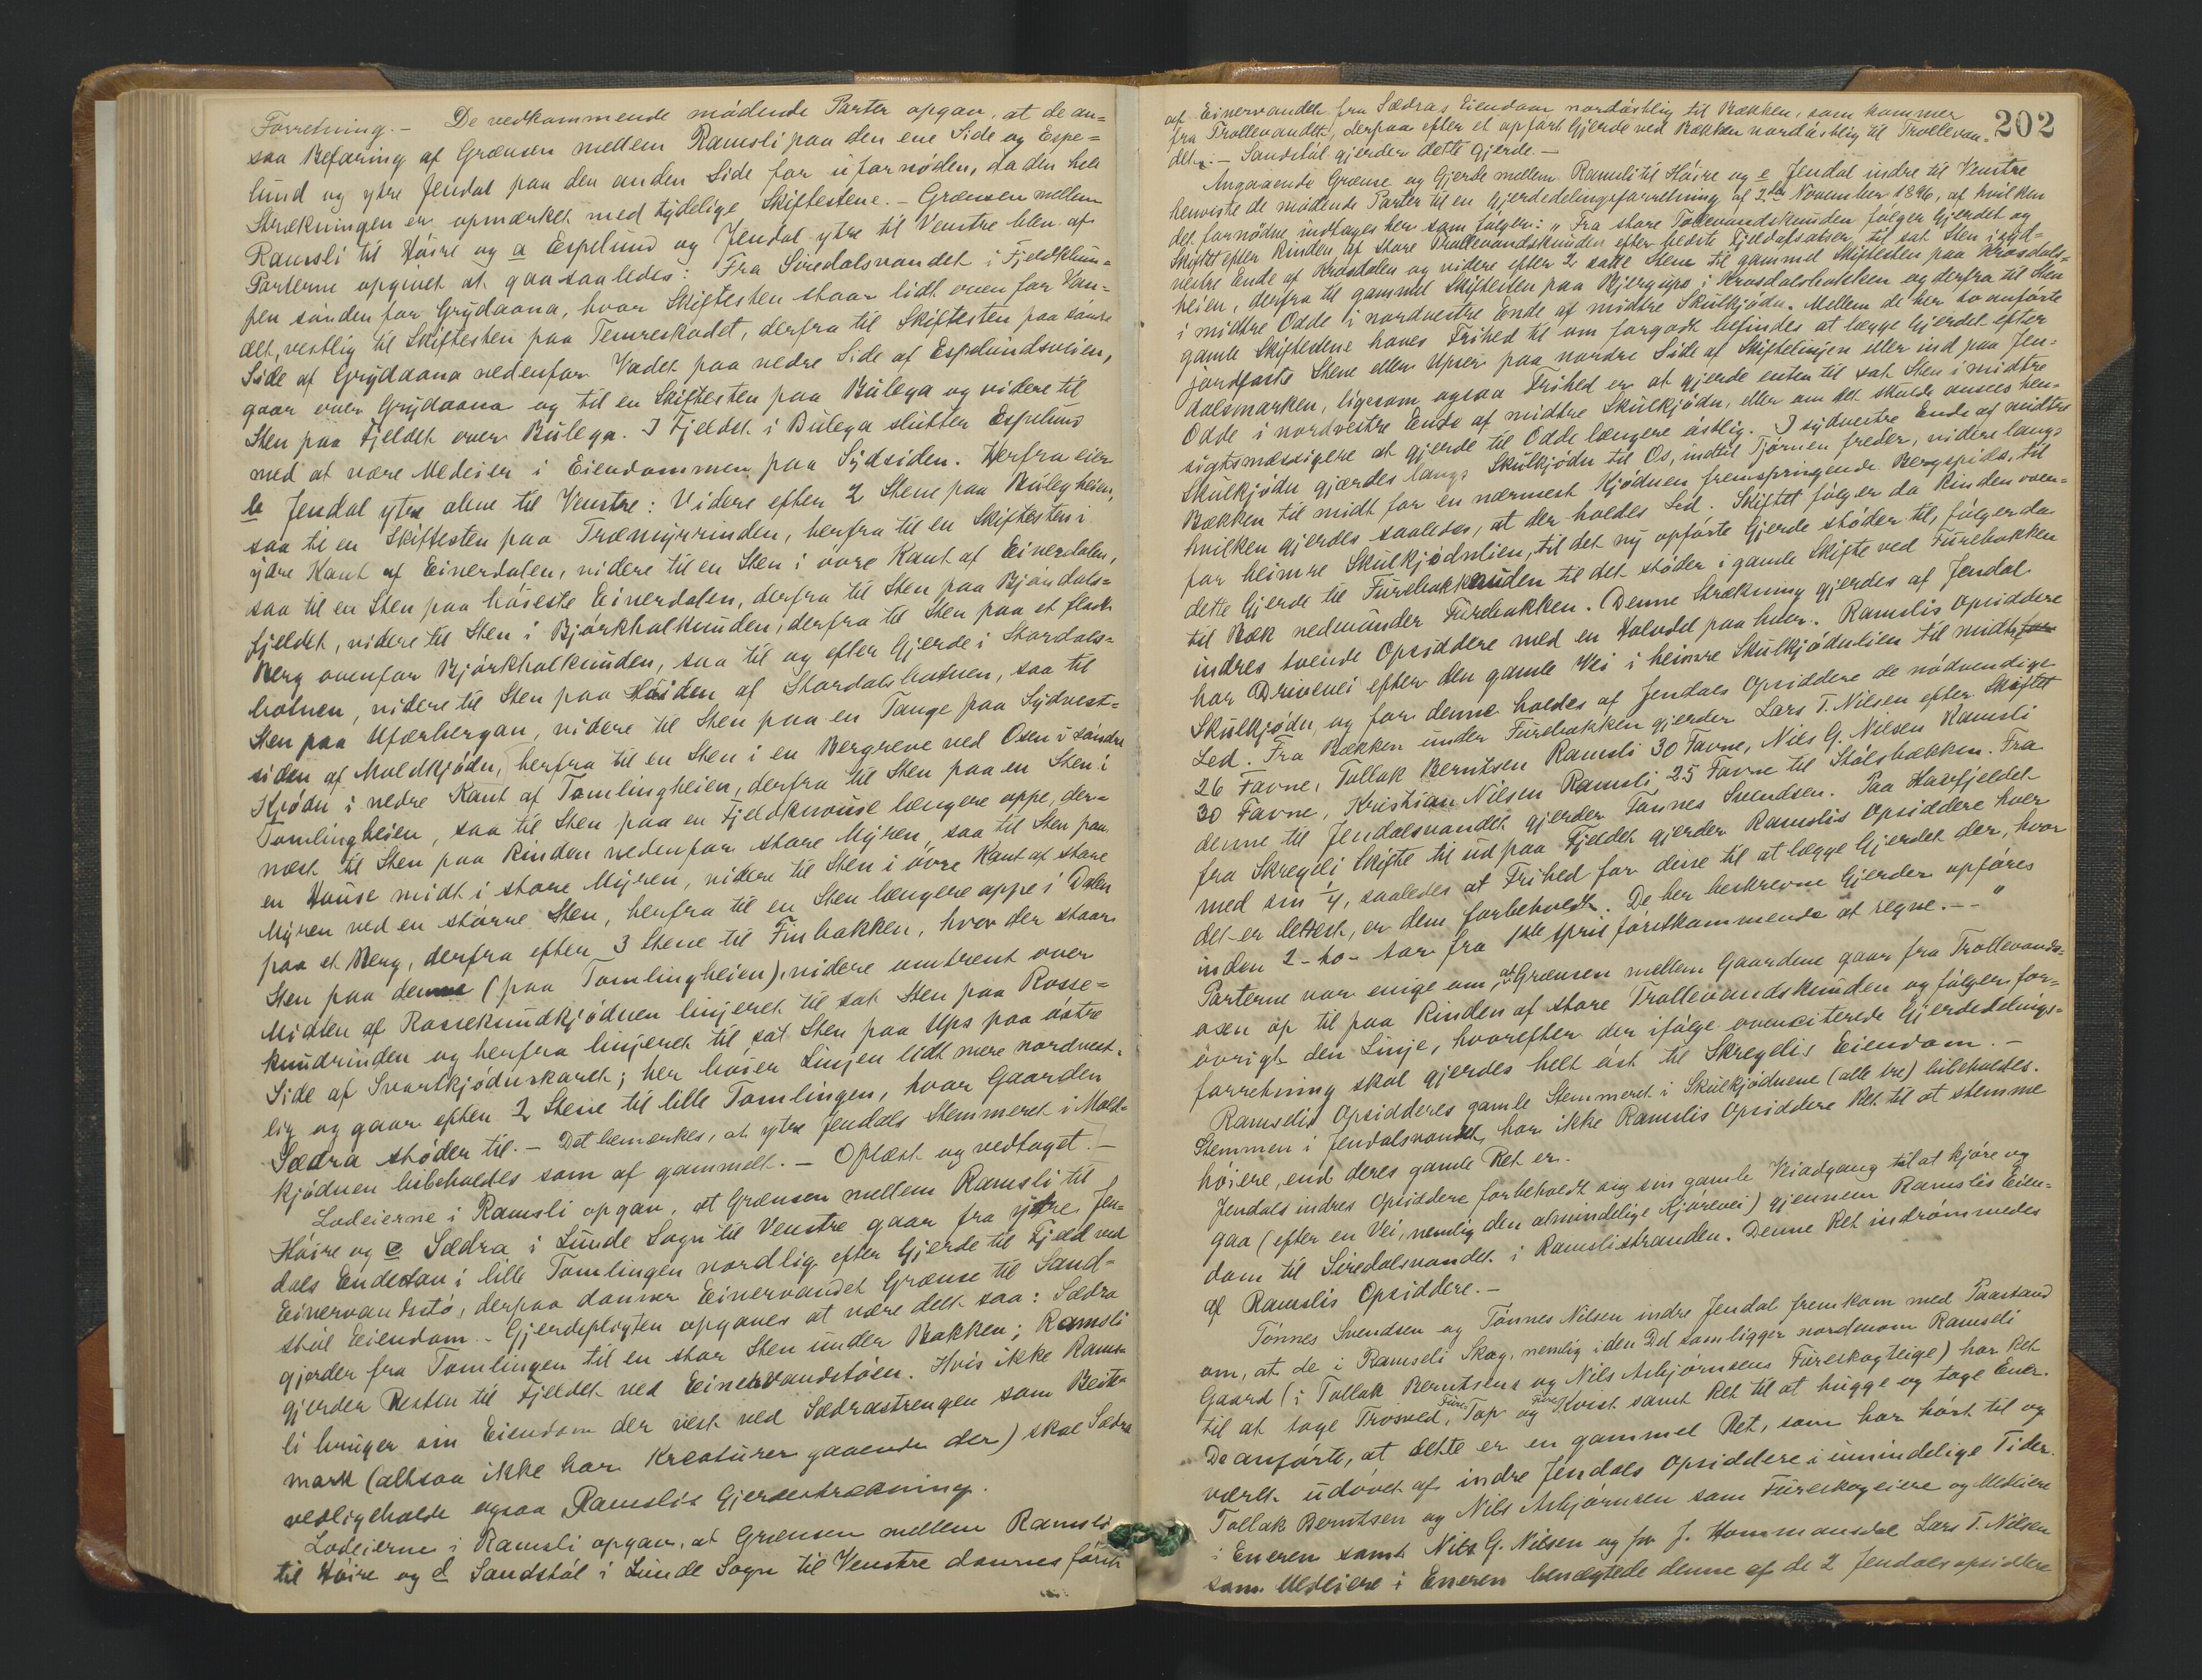 Forretning. - De vedkommende mödende Parter opgav, at de an-
saa Befaring af Grænsen mellem Ramsli paa den ene Side og Espe-
lund og ytre Jendal paa den anden Side for ufornöden, da den hele
Strækningen er opmærket med tydelige Skiftestene. - Grænsen mellem
Ramsli til Höire og a Espelund og Jendal ytre til Venstre blev af
Parterne opgivet at gaa saaledes: Fra Siredalsvandet i Fjeldklum-
pen sönden for Grydaana, hvor Skiftesten staar lidt oven for Van-
det, vestlig til Skiftesten paa Temreskodet, derfra til Skiftesten paa samme
Side af Grydaana nedenfor Vadet paa nedre Side af Espelundsveien,
gaar over Grydaana og til en Skiftesten paa Bulega og videre til
Sten paa Fjeldet over Bulega. I Fjeldet i Bulega slutter Espelund
med at være Medeier i Eiendommen paa Sydsiden. Herfra eier
b Jendal ytre alene til Venstre: Videre efter 2 Stene paa Bulegheien,
saa til en Skiftesten paa Træmyrrinden, herfra til en Skiftesten i
ydre Kant af Einerdalen, videre til en Sten i övre Kant af Einerdalen,
saa til en Sten paa höieste Einerdalen, derfra til Sten paa Bjöndals-
fjeldet, videre til Sten i Björkholknuden, derfra til Sten paa et fladt
Berg ovenfor Björkholknuden, saa til og efter Gjerde i Stordals-
botnen, videre til Sten paa Höiden af Stordalsbotnen, saa til
Sten paa Ufærbergan, videre til Sten paa en Tange paa Sydvest-
siden af Moldkjödn, herfra til en Sten i en Bergreve ved Osen i söndre
Kjödn i nedre Kant af Tomlingheien, derfra til Sten paa en Sten i
Tomlingheien, saa til Sten paa en Fjeldknouse længere oppe, der-
næst til Sten paa Rinden nedenfor store Myren, saa til Sten paa
en House midt i store Myren, videre til Sten i övre Kant af store
Myren ved en större Sten, herfra til en Sten længere oppe i Dalen
paa et Berg, derfra efter 3 Stene til Finbakken, hvor der staar
Sten paa denne (paa Tomlingheien), videre omtrent over
Midten af Rosseknudkjödnen linjeret til sat Sten paa Rosse-
knudrinden og herfra linjeret til sat Sten paa Ups paa östre
Side af Svartkjödnskaret; her böier Linjen lidt mere nordvest-
lig og gaar efter 2 Stene til lille Tomlingen, hvor Gaarden
Sædra stöder til. - Det bemærkes, at ytre Jendals Stemmeret i Mold-
kjödnen bibeholdes som af gammelt. - Oplæst og vedtaget. -
Lodeierne i Ramsli opgav, at Grænsen mellem Ramsli til
Höire og c Sædra i Lunde Sogn til Venstre gaar fra ytre Jen-
dals Endesten i lille Tomlingen nordlig efter Gjerde til Fjeld ved
Einervandstö, derpaa danner Einervandet Grænse til Sand-
stöl Eiendom. - Gjerdepligten opgaves at være delt saa: Sædra
gjerder fra Tomlingen til en stor Sten under Bakken; Ramsli
gjerder Resten til Fjeldet ved Einervandstöen. Hvis ikke Rams-
li bruger sin Eiendom der vest ved Sædrastrengen som Beite-
mark (altsaa ikke har Kreaturer gaaende der) skal Sædra
vedligeholde ogsaa Ramslis Gjerdestrækning.
Lodeierne i Ramsli opgav, at Grænsen mellem Ramsli
til Höire og d Sandstöl i Lunde Sogn til Venstre dannes först
202
af Einervandet fra Sædras Eiendom nordöstlig til Bækken, som kommer
fra Trollevandet, derpaa efter et opfört Gjerde ved Bækken nordöstlig til Trollevan-
det. - Sandstöl gjerder dette Gjerde. -
Angaaende Grænse og Gjerde mellem Ramsli til Höire og e Jendal indre til Venstre
henviste de mödende Parter til en Gjerdedelingsforretning af 2den November 1896, af hvilken
det fornödne indtages her som fölger: "Fra store Tollevandsknuden fölger Gjerdet og
Skiftet efter Rinden af store Trollevandsknuden efter bedste Fjeldafsatser til sat Sten i syd-
vestre Ende af Krosdalen og videre efter 2 satte Stene til gammel Skiftesten paa Krosdals-
heien, derfra til gammel Skiftesten paa Bjergups i Krosdalsbakken og derfra til Sten
i midtre Odde i nordvestre Ende af midtre Skulkjödn. Mellem de her to anförte
gamle Skiftestene haves Frihed til om forgodt befindes at lægge Gjerdet efter
jordfaste Stene eller Upser paa nordre Side af Skiftelinjen eller ind paa Jen-
dalsmarken, ligesom ogsaa Frihed er at gjerde enten til sat Sten i midtre
Odde i nordvestre Ende af midtre Skulkjödn, eller om det skulde ansees hen-
sigtsmæssigere at gjerde til Odde længere östlig. I sydvestre Ende af midtre
Skulkjödn gjærdes langs Skulkjödn til Os, indtil Tjörnen freder, videre langs
Bækken til midt for en nærmest Kjödnen fremspringende Bergspids, til
hvilken gjerdes saaledes, at der holdes Led. Skiftet fölger da Rinden oven-
for heimre Skulkjödnlien, til det ny opförte Gjerde stöder til, fölger da
dette Gjerde til Furebakknuden til det stöder i gamle Skifte ved Furebakken
til Bæk nedunder Furebakken. (Denne Strækning gjerdes af Jendal
indres tvende Opsiddere med en Halvdel paa hver. Ramslis Opsiddere
har Drivevei efter den gamle Vei i heimre Skulkjödnlien til midtre
Skulkjödn, og for denne holdes af Jendals Opsiddere de nödvendige
Led. Fra Bækken under Furebakken gjerder Lars T. Nilsen efter Skiftet
26 Favne, Tollak Berntsen Ramsli 30 Favne, Nils G. Nilsen Ramsli
30 Favne, Kristian Nilsen Ramsli 25 Favne til Stölsbækken. Fra
denne til Jendalsvandet gjerder Tönnes Svendsen. Paa Havfjeldet
fra Skregeli Skifte til ud paa Fjeldet gjerder Ramslis Opsiddere hver
med sin 1/4, saaledes at Frihed for disse til at lægge Gjerdet der, hvor
det er lettest, er dem forbeholdt. De her beskrevne Gjerder opföres
inden 2 - to - Aar fra 1ste April förstkommende at regne. - - "
Parterne var enige om, at Grænsen mellem Gaardene gaar fra Trollevands-
osen op til paa Rinden af store Trollevandsknuden og fölger for-
övrigt den Linje, hvorefter der ifölge ovenciterede Gjerdedelings-
forretning skal gjerdes helt öst til Skregelis Eiendom. -
Ramslis Opsidderes gamle Stemmeret i Skulkjödnene (alle tre) bibeholdes.
Stemmen i Jendalsvandet har ikke Ramslis Opsiddere Ret til at stemme
höiere, end deres gamle Ret er.
Jendals indres Opsiddere forbeholdt sig sin gamle Veiadgang til at kjöre og
gaa (efter en Vei, nemlig den almindelige Kjörevei) gjennem Ramslis Eien-
dom til Siredalsvandet i Ramslistranden. Denne Ret indrömmedes
af Ramslis Opsiddere. -
Tönnes Svendsen og Tönnes Nilsen indre Jendal fremkom med Paastand
om, at de i Ramsli Skog, nemlig i den Del som ligger nordenom Ramsli
Gaard (i Tollak Berntsens og Nils Asbjörnsens Fureskogteige) har Ret
til at tage Trosved, Fure Top og Fure Kvist samt Ret til at hugge og tage Ener.
De anförte, at dette er en gammel Ret, som har hört til og
været udövet af indre Jendals Opsiddere i umindelige Tider.
Tollak Berntsen og Nils Asbjörnsen som Fureskogeiere og Medeiere
i Eneren samt Nils G. Nilsen og for J. Hommansdal Lars T. Nilsen
som Medeiere i Eneren benægtede denne af de 2 Jendalsopsiddere